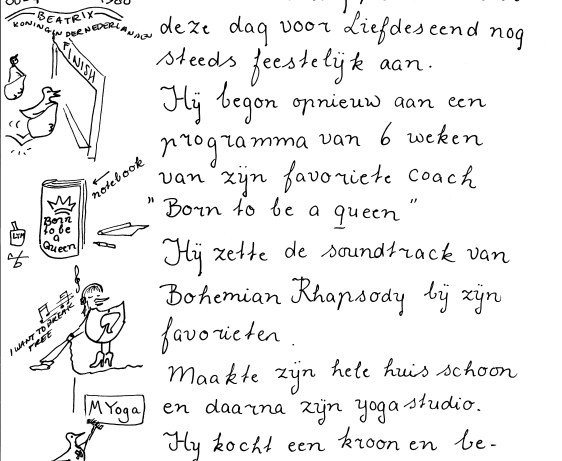 1980
BEATRIX
KONINGIN DER NEDERLANDEN
FINISH
deze dag voor Liefdeseend nog
steeds feestelijk aan.
Hij begon opnieuw aan een
programma van 6 weken
van zijn favoriete coach
"Born to be a queen"
notebook
Born
to be
a
Queen
LYM
Hij zette de soundtrack van
Bohemian Rhapsody bij zijn
favorieten.
I WANT TO BREAK
FREE
Maakte zijn hele huis schoon
en daarna zijn yogastudio.
M Yoga
Hy kocht een kroon en be-